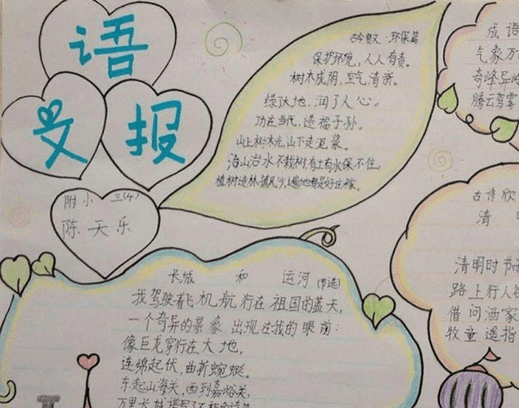 语
文
报
附小 三(4)
陈天乐
环保篇
保护环境，人人有责。
树木成荫，空气清新。
绿沃地，润了人心。
功在当代，造福子孙。
山上树木光，山下走泥浆。
海山治水不栽树，有土有水保不住。
植树造林
长城 和 运河(节选)
我驾驶着飞机航行在祖国的蓝天，
一个奇异的景象出现在我的眼前：
像巨龙穿行在大地，
连绵起伏，曲折蜿蜒。
东起山海关，西到嘉峪关，
万里长城
成语
气象万
奇峰异
腾云驾雾
古诗欣
清
清明时节
路上行人
借问酒家
牧童遥指